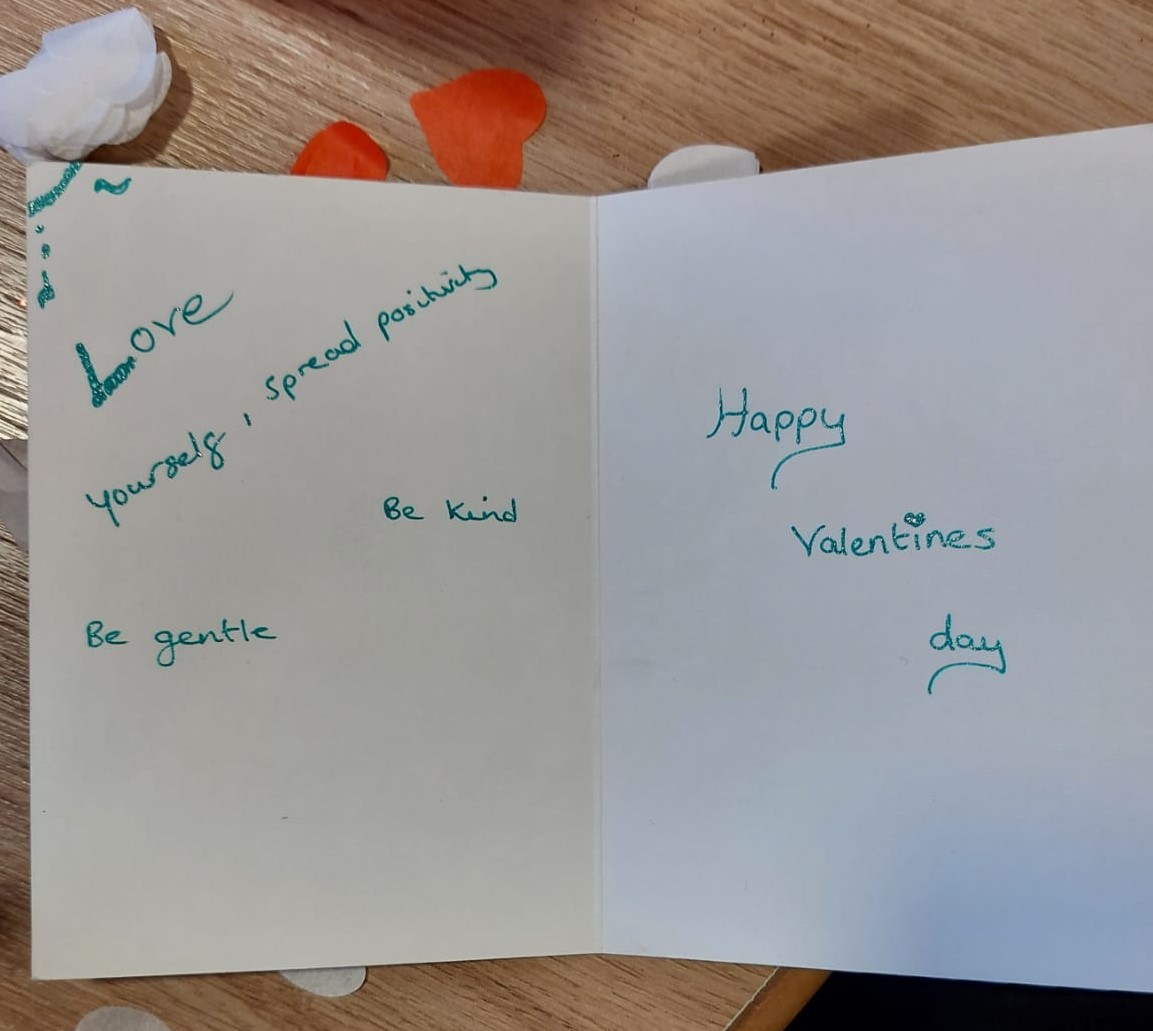 Love
yourself, spread positivity
Be kind
Be gentle
Happy
Valentines
day